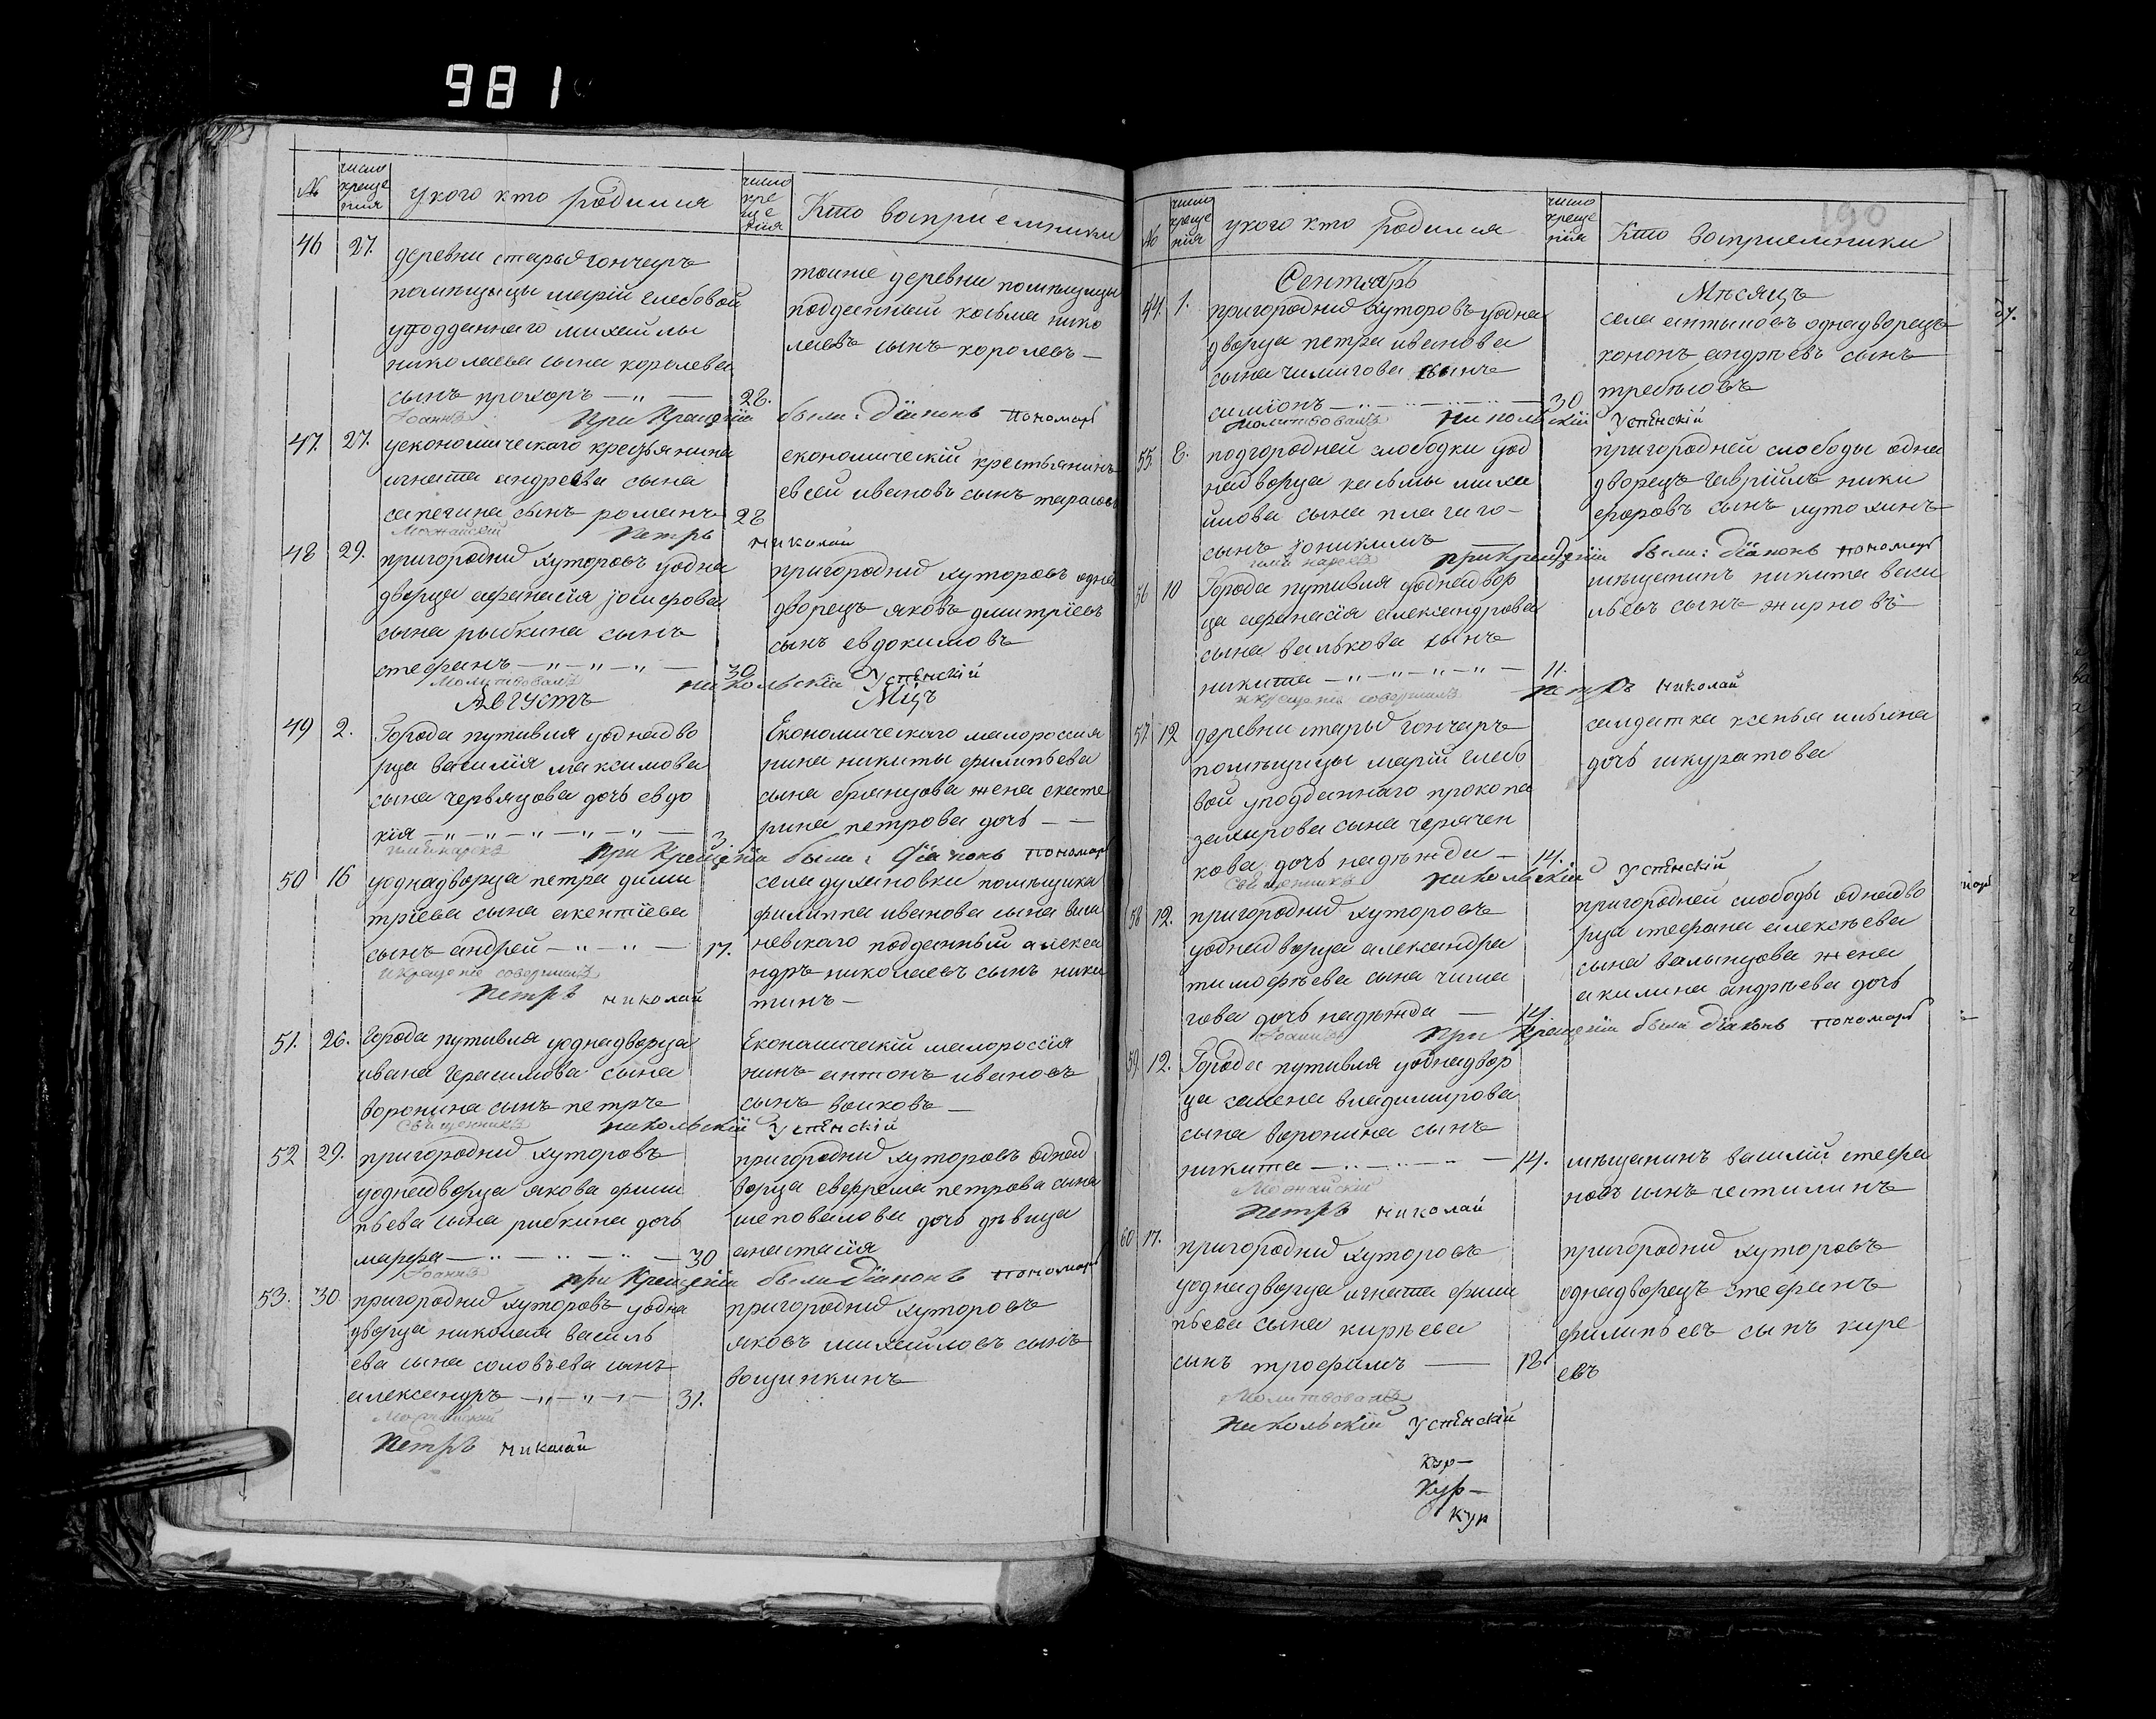 981
№
число
креще
ния
у кого кто родился
число
кре
ще
нія
Кто восприемники
46 27. деревни старых гончаръ
помещицы маріи глебовой
у подданнаго михайлы
николаева сына королева
сынъ прохоръ — " — 28.
тоиже деревни помещицы
подданный косьма нико
лаевъ сынъ королевъ —
Іоаннъ при Крещеніи были: Діаконъ пономарь
47. 27. у економическаго крестьянина
игната андреева сына
сапегина сынъ романъ 28
економическій крестьянинъ
евсей ивановъ сынъ тарасовъ
Можайскій Петръ Николай
48 29. пригородних хуторовъ у одна
дворца афанасія іосифова
сына рыбкина сынъ
стефанъ — " — " — " — 30
пригородних хуторовъ одно
дворецъ яковъ дмитріевъ
сынъ евдокимовъ
Молитвовалъ никольскій Успенскій
Августъ Мцъ
49 2. Города путивля у однадво
рца василія максимова
сына червяцова дочь евдо
кія — " — " — " — " — " — 3.
Економическаго малороссія
нина никиты филипьева
сына брянцова жена екате
рина петрова дочь — —
при Крещеніи были: діаконъ пономарь
50 16 у однадворца петра дими
тріева сына акентіева
сынъ андрей — " — " — 17.
села духановки помещика
филиппа иванова сына виш
невскаго подданный алекса
ндръ николаевъ сынъ ники
тинъ —
и крещеніе совершилъ
Петръ Николай
51. 26. Города путивля у однадворца
ивана герасимова сына
воронина сынъ петръ
Економическій малороссія
нинъ антонъ ивановъ
сынъ волковъ —
Священникъ никольскій Успенскій
52 29. пригородних хуторовъ
у однадворца якова фили
пьева сына рыбкина дочь
марфа — " — " — " — 30
пригородних хуторовъ однад
ворца евфрема петрова сына
шаповалова дочь девица
анастасія
Іоаннъ при Крещеніи были Діаконъ пономарь
53. 30 пригородних хуторовъ у одна
дворца николая василь
ева сына соловьева сынъ
александръ — " — " — " — 31.
пригородних хуторовъ
яковъ михайловъ сынъ
вощинкинъ
Можайскій
Петръ Николай
190
№
число
креще
ния
у кого кто родился
число
креще
нія
Кто восприемники
Сентябрь Месяцъ
44. 1. пригородних хуторовъ у одна
дворца петра иванова
сына чимигова сынъ
симіонъ — " — " — " — 30
села антыковъ однадворецъ
кононъ андреевъ сынъ
требысовъ
Молитвовалъ Никольскій Успенскій
55. 8. подгородней слободки у од
надворца касьмы миха
йлова сына плагиго —
сынъ іоникимъ
пригородней слободы одна
дворецъ гаврійлъ ники
форовъ сынъ лутохинъ
при крещеніи были: Діаконъ пономарь
56 10 Города путивля у однадвор
ца афанасія александрова
сына валькова сынъ
никита — " — " — " — " — 11.
мещанинъ никита васи
льевъ сынъ жирновъ
и крещеніе совершилъ Петръ Николай
57 12 деревни старых гончаръ
помещицы маріи глебо
вой у подданнаго прокопа
захирова сына черячен
кова дочь надежда — 14.
салдатка ксенья ильина
дочь шкуратова
Священникъ никольскій Успенскій
58 12. пригородних хуторовъ
у однадворца александра
тимофеева сына чима
гова дочь надежда — 14
пригородней слободы однадво
рца стефана алексеева
сына валынцова жена
акилина андреева дочь
Іоаннъ при Крещеніи были Діаконъ пономарь
59. 12. Города путивля у однадвор
ца семена владимирова
сына воронина сынъ
никита — " — " — " — 14.
мещанинъ василій стефа
новъ сынъ честилинъ
Можайскій
Петръ Николай
60 17. пригородних хуторовъ
у однадворца игната фили
пьева сына киреева
сынъ трофимъ — 18.
пригородних хуторовъ
однадворецъ стефанъ
филипьевъ сынъ кире
евъ
Молитвовалъ
Никольскій Успенскій
Кур —
Кур —
Кур